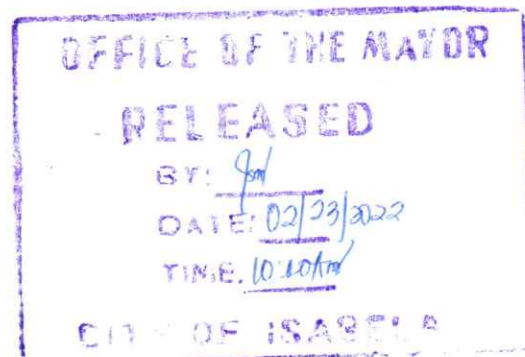 OFFICE OF THE MAYOR
RELEASED
BY:
DATE: 02/23/2022
TIME: 10:10Am
CITY OF ISABELA